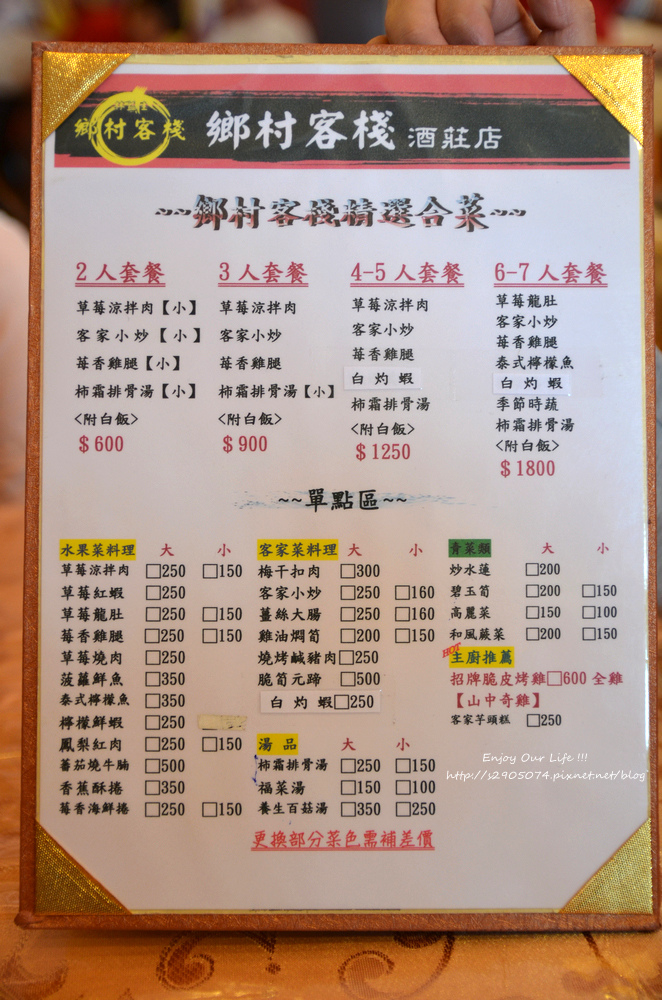 鄉村客棧
鄉村客棧 酒莊店
~~鄉村客棧精選合菜~~
2人套餐
草莓涼拌肉【小】
客家小炒【小】
莓香雞腿【小】
柿霜排骨湯【小】
<附白飯>
$600
3人套餐
草莓涼拌肉
客家小炒
莓香雞腿
柿霜排骨湯【小】
<附白飯>
$900
4-5人套餐
草莓涼拌肉
客家小炒
莓香雞腿
白灼蝦
柿霜排骨湯
<附白飯>
$1250
6-7人套餐
草莓龍肚
客家小炒
莓香雞腿
泰式檸檬魚
白灼蝦
季節時蔬
柿霜排骨湯
<附白飯>
$1800
~~單點區~~
水果菜料理 大 小
草莓涼拌肉 □250 □150
草莓紅蝦 □250
草莓龍肚 □250 □150
莓香雞腿 □250 □150
草莓燒肉 □250
菠蘿鮮魚 □350
泰式檸檬魚 □350
檸檬鮮蝦 □250
鳳梨紅肉 □250 □150
蕃茄燒牛腩 □500
香蕉酥捲 □350
莓香海鮮捲 □250 □150
客家菜料理 大 小
梅干扣肉 □300
客家小炒 □250 □160
薑絲大腸 □250 □160
雞油燜筍 □200 □150
燒烤鹹豬肉 □250
脆筍元蹄 □500
白灼蝦 □250
湯品 大 小
柿霜排骨湯 □250 □150
福菜湯 □150 □100
養生百菇湯 □350 □250
青菜類 大 小
炒水蓮 □200
碧玉筍 □200 □150
高麗菜 □150 □100
和風蕨菜 □200 □150
HOT
主廚推薦
招牌脆皮烤雞 □600 全雞
【山中奇雞】
客家芋頭糕 □250
更換部分菜色需補差價
Enjoy Our Life !!!
http://s2905074.pixnet.net/blog